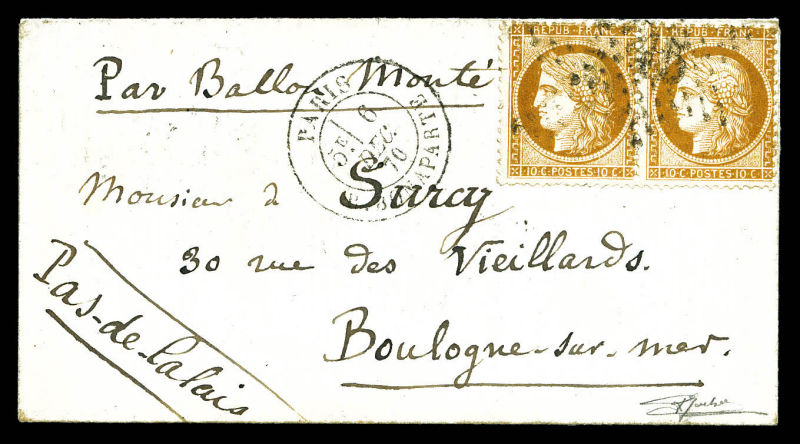 Par Ballon Monté
REPUB·FRANC
REPUB·FRANC
10·C·POSTES·10·C
10·C·POSTES·10·C
PARIS
6
DEC.
70
BONAPARTE
Monsieur à Surcy
30 rue des Vieillards.
Boulogne-sur-mer.
Pas-de-Calais